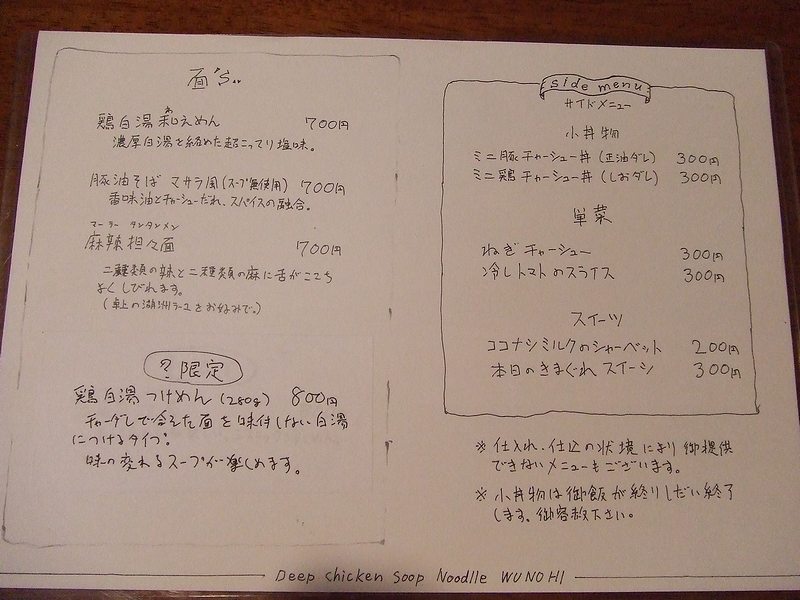 面's..
鶏白湯 和えめん 700円
わ
濃厚白湯を絡めた超こってり塩味。
豚油そば マサラ風(スープ無使用) 700円
香味油とチャーシューだれ、スパイスの融合。
マーラー タンタンメン
麻辣担々面 700円
二種類の辣と二種類の麻に舌がここち
よくしびれます。
(卓上の湖洲ラー油をお好みで。)
?限定
鶏白湯つけめん(280g) 800円
チャーダレで冷えた面を味付しない白湯
につけるタイプ。
味の変わるスープが楽しめます。
side menu
サイドメニュー
小丼物
ミニ豚チャーシュー丼(正油ダレ) 300円
ミニ鶏チャーシュー丼(しおダレ) 300円
単菜
ねぎチャーシュー 300円
冷しトマトのスライス 300円
スイーツ
ココナッツミルクのシャーベット 200円
本日のきまぐれスイーツ 300円
※仕入れ、仕込の状境により御提供
できないメニューもございます。
※小丼物は御飯が終りしだい終了
します。御容赦下さい。
Deep chicken Soop Noodlle WUNOHI